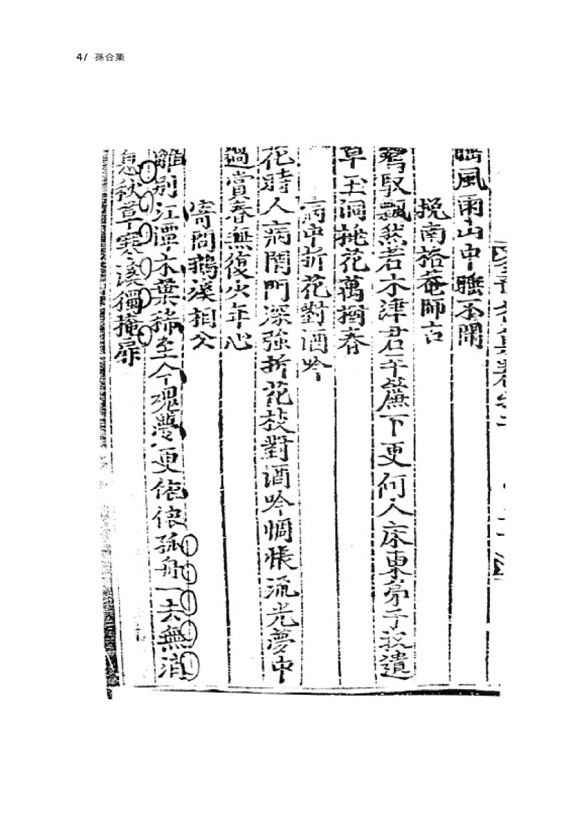 4/ 孫合集
風雨山中
挽南格菴師古
鸞馭飄然若木津君平簾下更何人床東弟子收遺
草玉洞桃花萬樹春
病中折花對酒吟
花時人病閉門深強折花枝對酒吟惆悵流光夢中
過賞春無復少年心
寄問鵝溪相公
離別江潭木葉稀至今魂夢更依依孤舟一去無消
息秋草寒溪獨掩扉